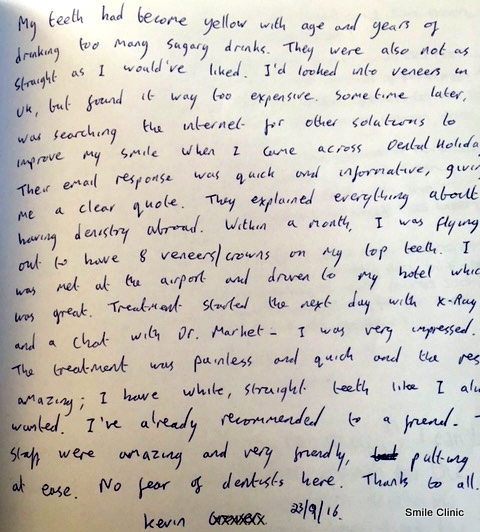 My teeth had become yellow with age and years of
drinking too many sugary drinks. They were also not as
straight as I would've liked. I'd looked into veneers in
UK, but found it way too expensive. Some time later,
was searching the internet for other solutions to
improve my smile when I came across Dental Holida
Their email response was quick and informative, givin
me a clear quote. They explained everything about
having denistry abroad. Within a month, I was flying
out to have 8 veneers/crowns on my top teeth. I
was met at the airport and driven to my hotel whic
was great. Treatment started the next day with X-Ray
and a chat with Dr. Market - I was very impressed.
The treatment was painless and quick and the res
amazing; I have white, straight teeth like I alw
wanted. I've already recommended to a friend. -
Staff were amazing and very friendly, putting
at ease. No fear of dentists here. Thanks to all.
Kevin 23/9/16
Smile Clinic